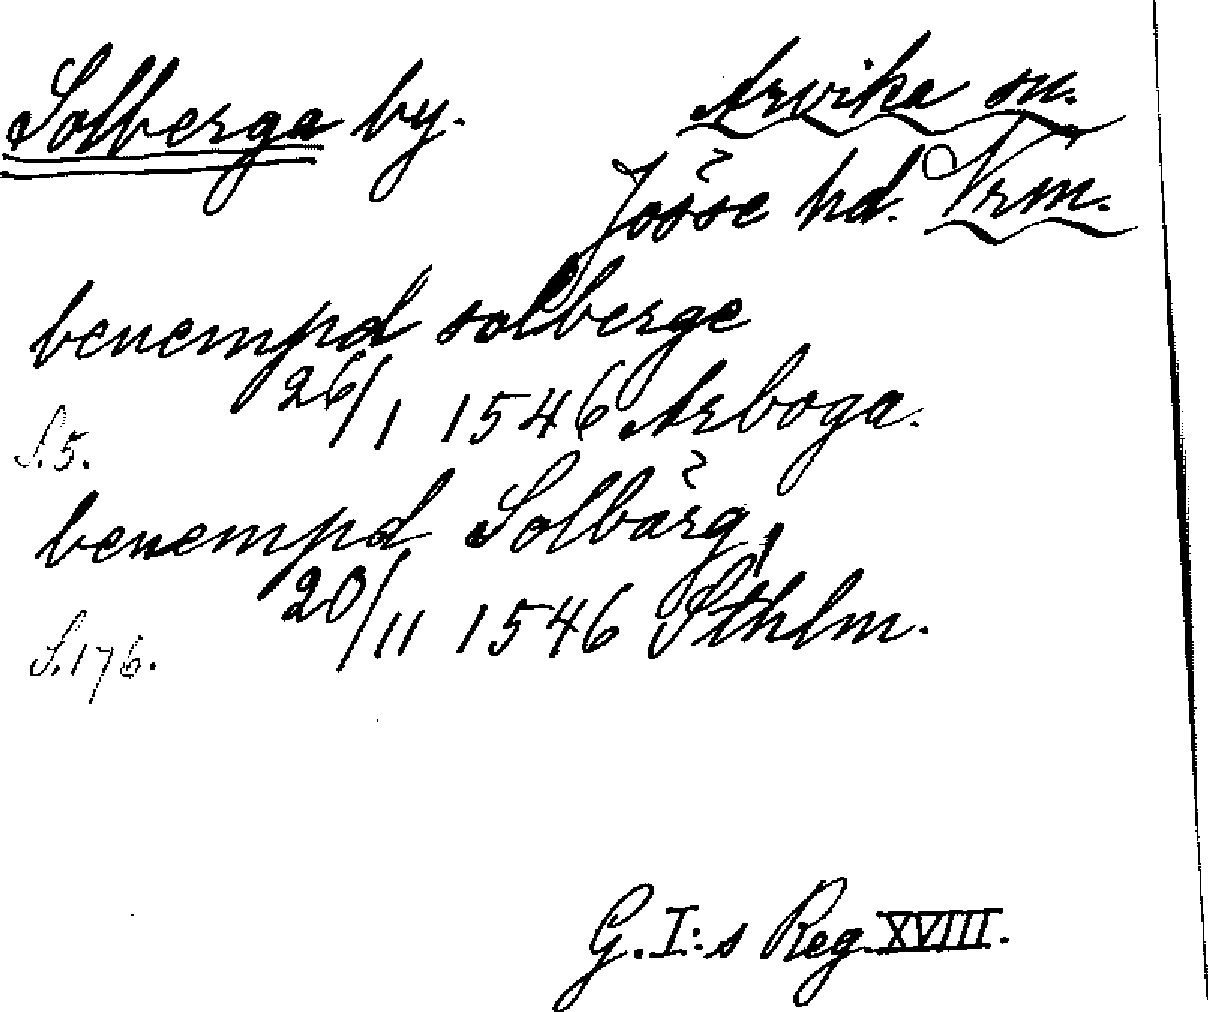 Solberga by. Arvika sn.
Jösse hd. Vrm.
benempd solberge
26/1 1546 Arboga.
S. 5.
benempd Solbärg,
20/11 1546 Sthlm.
S. 176.
G. I:s Reg. XVIII.